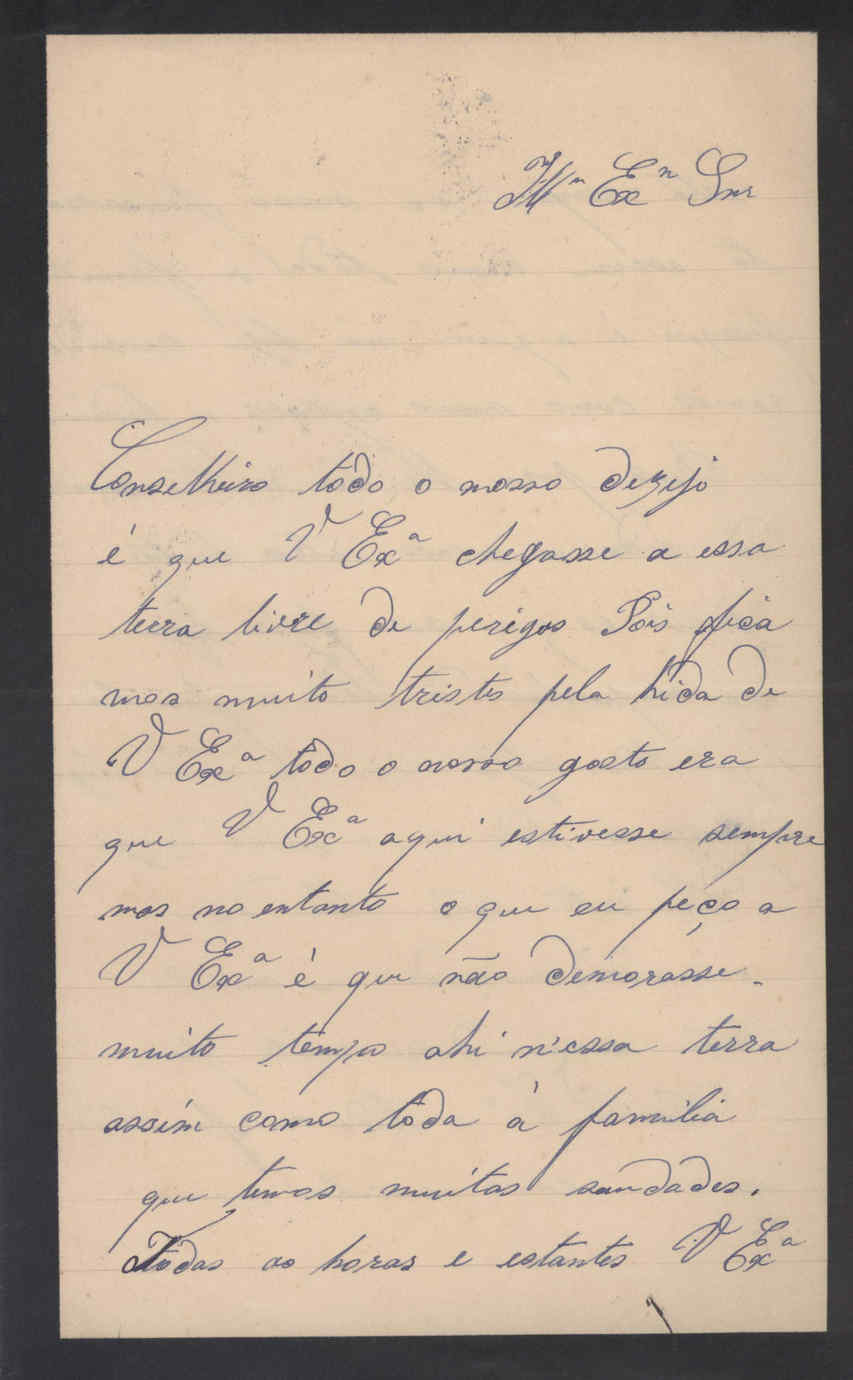 Illᵐ Exᵐ Snr
Conselheiro todo o nosso dezejo
é que V Exª chegasse a essa
terra livre de perigos Pois fica
mos muito tristes pela hida de
V Exª todo o nosso gosto era
que V Exª aqui estivesse sempre
mas no entanto o que eu peço a
V Exª é que não demorasse
muito tempo ahi n'essa terra
assim como toda á familia
que temos muitas saudades.
Todas as horas e estantes V Exª